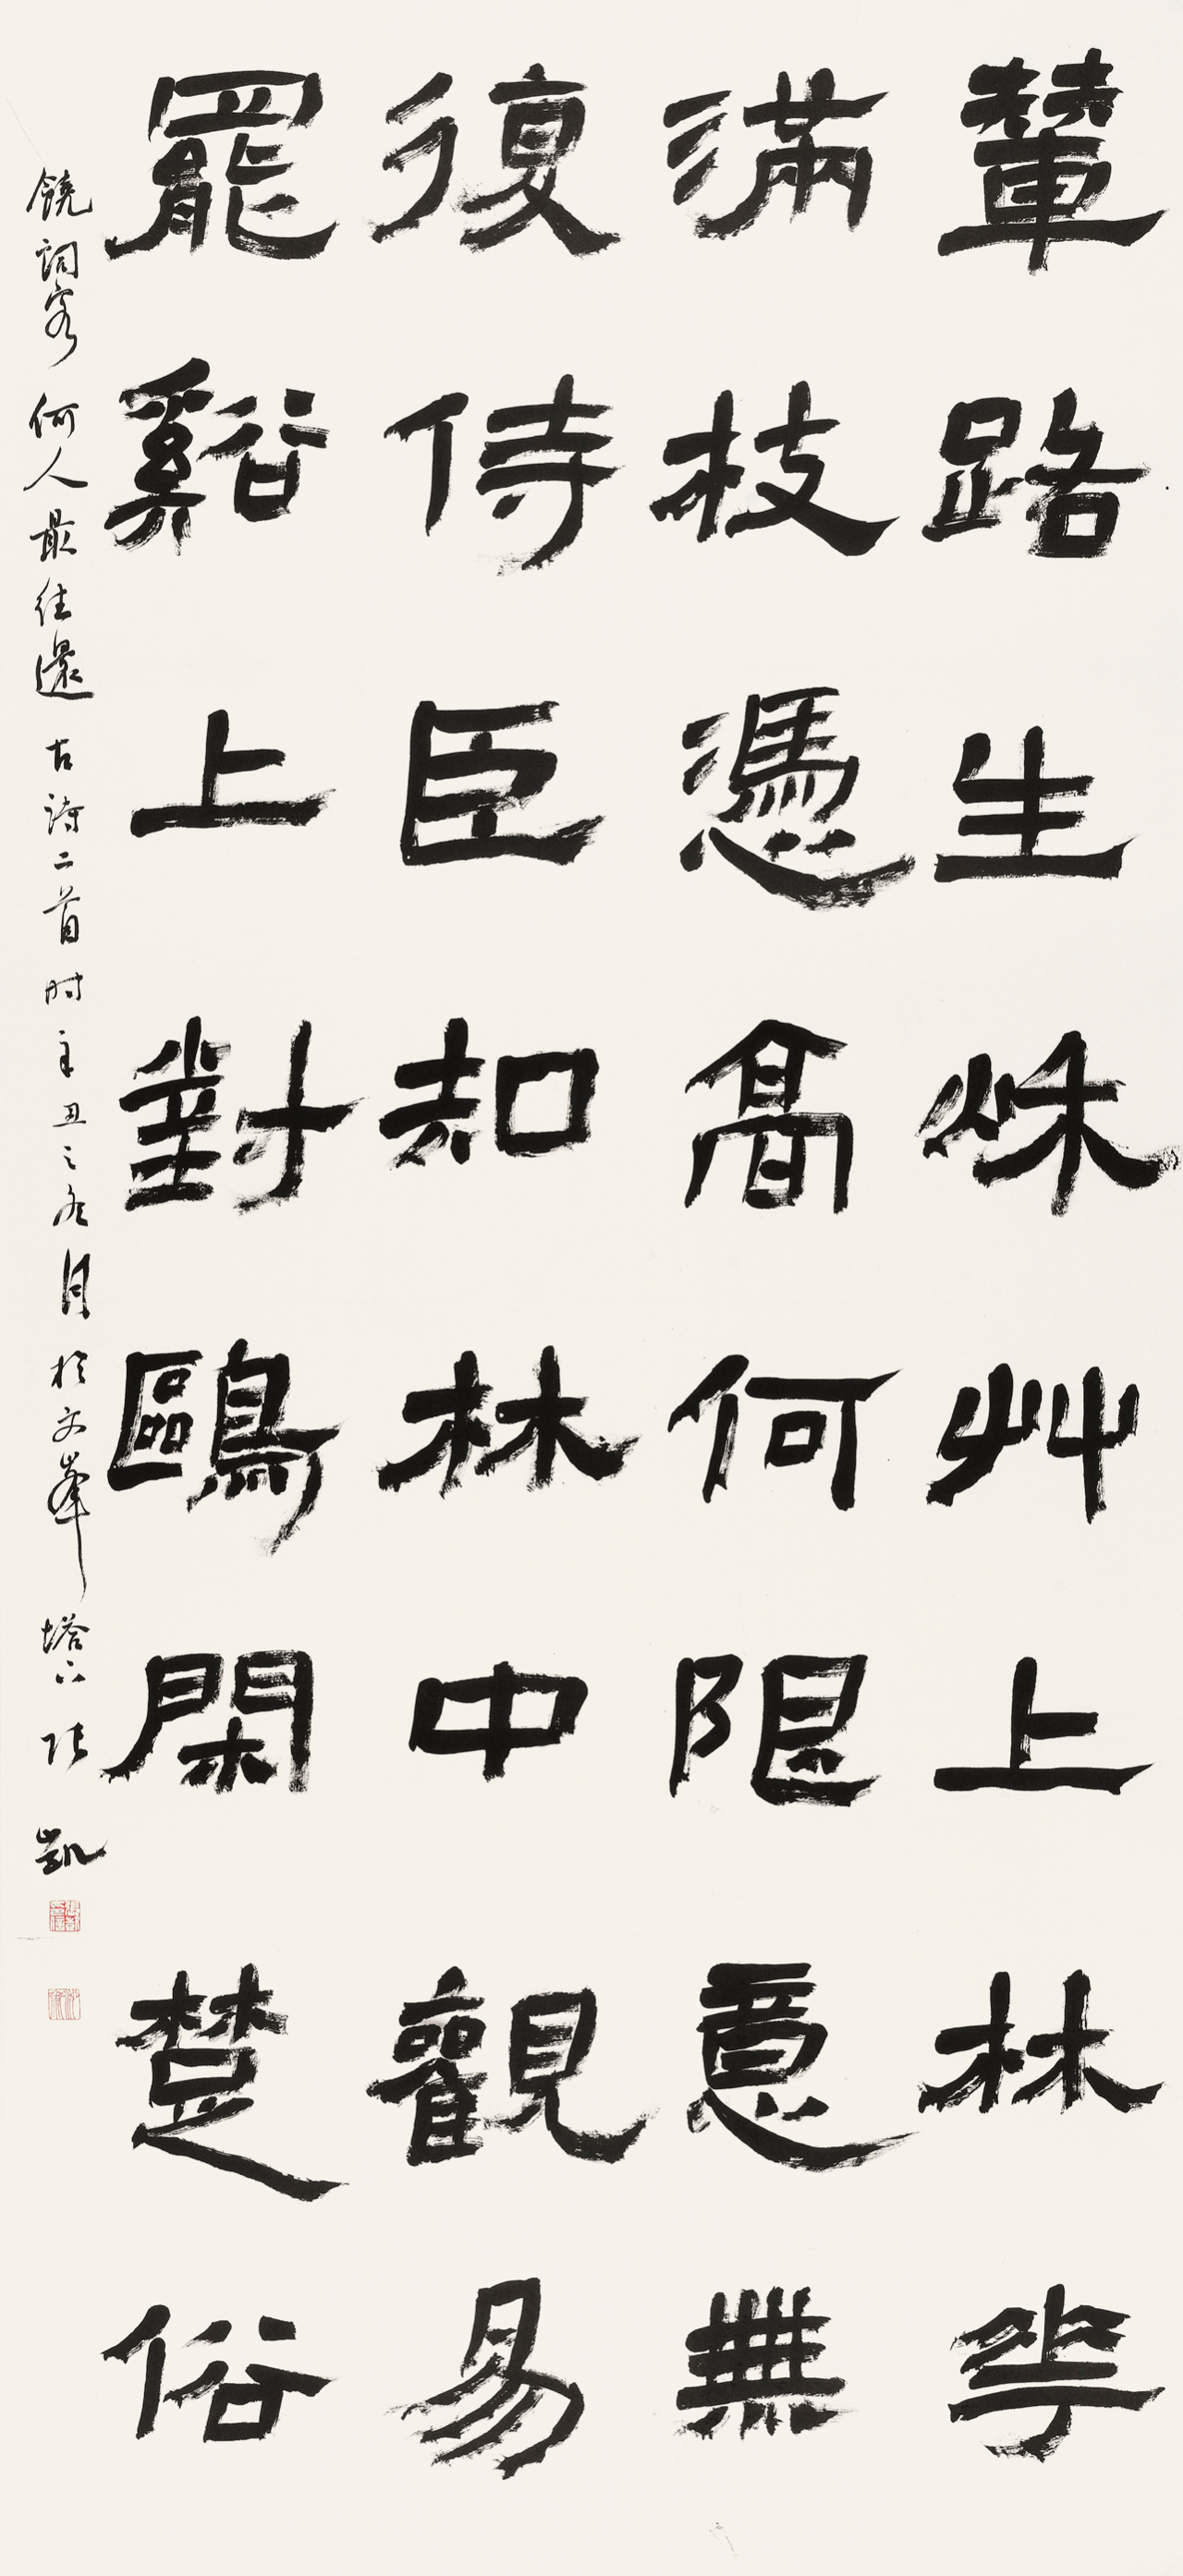 輦路生秌艸上林㠯
滿枝憑高何限意無
復侍臣知林中觀易
罷谿上對鷗閑楚俗
饒詞客何人最往還古詩二首时辛丑之冬月於文峯塔下张凯